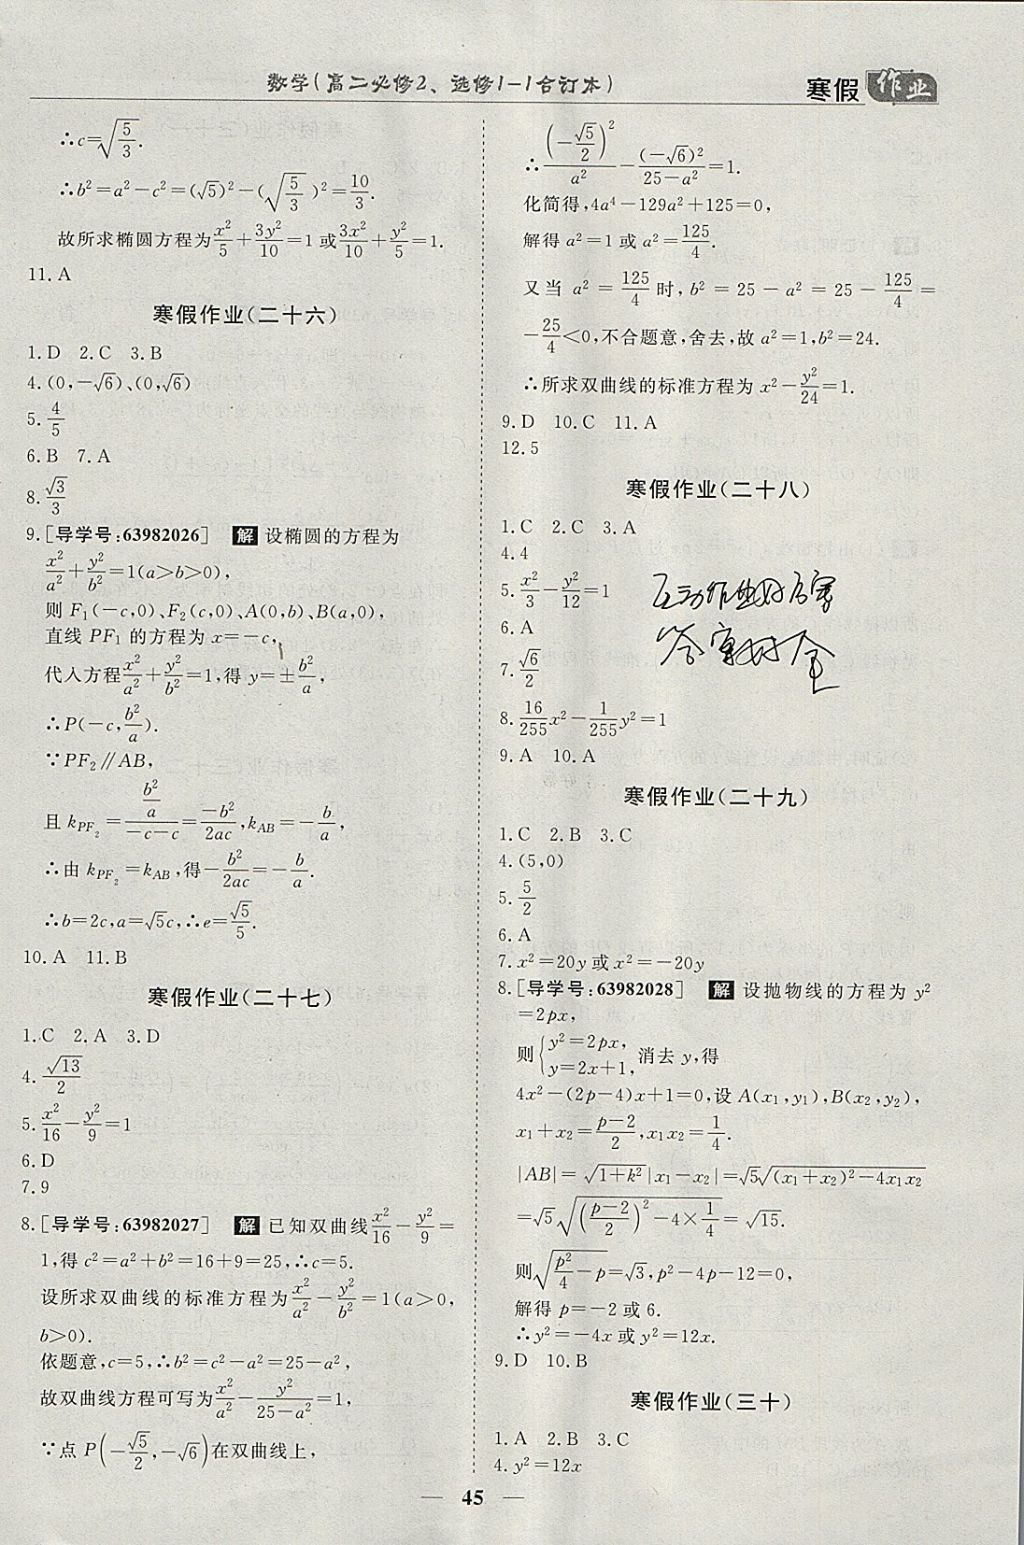 数学(高二必修2、选修1-1合订本)
寒假作业
∴c=√(5/3).
∴b²=a²-c²=(√5)²-(√(5/3))²=10/3.
故所求椭圆方程为x²/5+3y²/10=1或3x²/10+y²/5=1.
11.A
寒假作业(二十六)
1.D 2.C 3.B
4.(0,-√6)、(0,√6)
5.4/5
6.B 7.A
8.√3/3
9.[导学号:63982026] 解 设椭圆的方程为
x²/a²+y²/b²=1(a>b>0),
则 F₁(-c,0)、F₂(c,0)、A(0,b)、B(a,0),
直线 PF₁ 的方程为 x=-c,
代入方程x²/a²+y²/b²=1,得 y=±b²/a,
∴P(-c,b²/a).
∵PF₂∥AB,
且 k_PF₂=(b²/a)/(-c-c)=-b²/2ac,k_AB=-b/a,
∴由 k_PF₂=k_AB,得-b²/2ac=-b/a.
∴b=2c,a=√5c,∴e=√5/5.
10.A 11.B
寒假作业(二十七)
1.C 2.A 3.D
4.√13/2
5.x²/16-y²/9=1
6.D
7.9
8.[导学号:63982027] 解 已知双曲线x²/16-y²/9=
1,得 c²=a²+b²=16+9=25,∴c=5.
设所求双曲线的标准方程为x²/a²-y²/b²=1(a>0,
b>0).
依题意,c=5,∴b²=c²-a²=25-a²,
故双曲线方程可写为x²/a²-y²/(25-a²)=1,
∵点 P(-√5/2,-√6)在双曲线上,
∴(-√5/2)²/a²-(-√6)²/(25-a²)=1.
化简得,4a⁴-129a²+125=0,
解得 a²=1 或 a²=125/4.
又当 a²=125/4时,b²=25-a²=25-125/4=
-25/4<0,不合题意,舍去,故 a²=1,b²=24.
∴所求双曲线的标准方程为 x²-y²/24=1.
9.D 10.C 11.A
12.5
寒假作业(二十八)
1.C 2.C 3.A
4.4
5.x²/3-y²/12=1
6.A
7.√6/2
8.16/255x²-1/255y²=1
9.A 10.A
寒假作业(二十九)
1.C 2.B 3.C
4.(5,0)
5.5/2
6.A
7.x²=20y 或 x²=-20y
8.[导学号:63982028] 解 设抛物线的方程为 y²
=2px,
则{y²=2px, y=2x+1, 消去 y,得
4x²-(2p-4)x+1=0,设 A(x₁,y₁),B(x₂,y₂),
x₁+x₂=(p-2)/2,x₁x₂=1/4.
|AB|=√(1+k²)|x₁-x₂|=√5√((x₁+x₂)²-4x₁x₂)
=√5√(((p-2)/2)²-4×1/4)=√15.
则√(p²/4-p)=√3,p²-4p-12=0,
解得 p=-2 或 6.
∴y²=-4x 或 y²=12x.
9.D 10.B
寒假作业(三十)
1.A 2.B 3.C
4.y²=12x
45